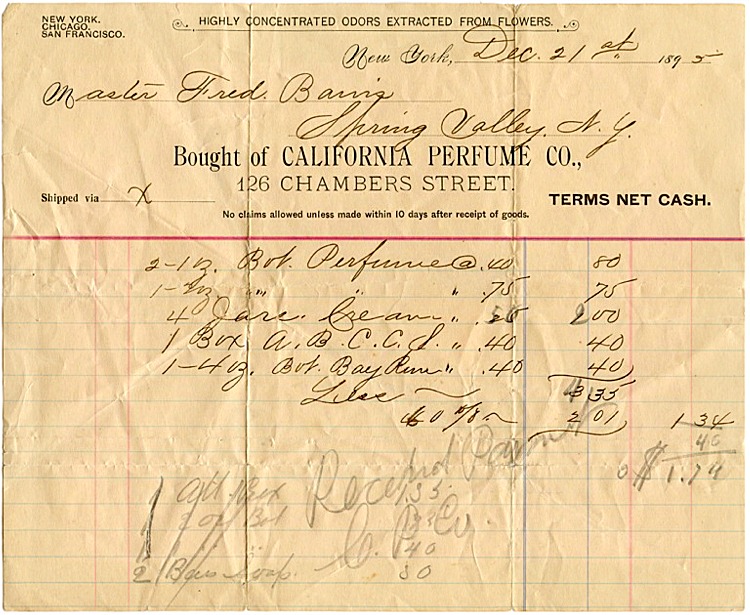 NEW YORK.
CHICAGO.
SAN FRANCISCO.
HIGHLY CONCENTRATED ODORS EXTRACTED FROM FLOWERS.
New York, Dec. 21st 1895
Master Fred.
Spring Valley, N.Y.
Bought of CALIFORNIA PERFUME CO.,
126 CHAMBERS STREET.
Shipped via X
TERMS NET CASH.
No claims allowed unless made within 10 days after receipt of goods.
2-1 oz. Bot. Perfume @ .40 80
1-2oz " " " .75 75
4 Jars Cream " 200
1 Box A. B. C. C. " .40 40
1-4oz. Bot. Bay Rum " .40 40
Less 335
60 % 201 134
40
$1.74
Received Paym
C. P. Co.
Box 35
2 oz Bot
" 40
2 Bars Soap. 30